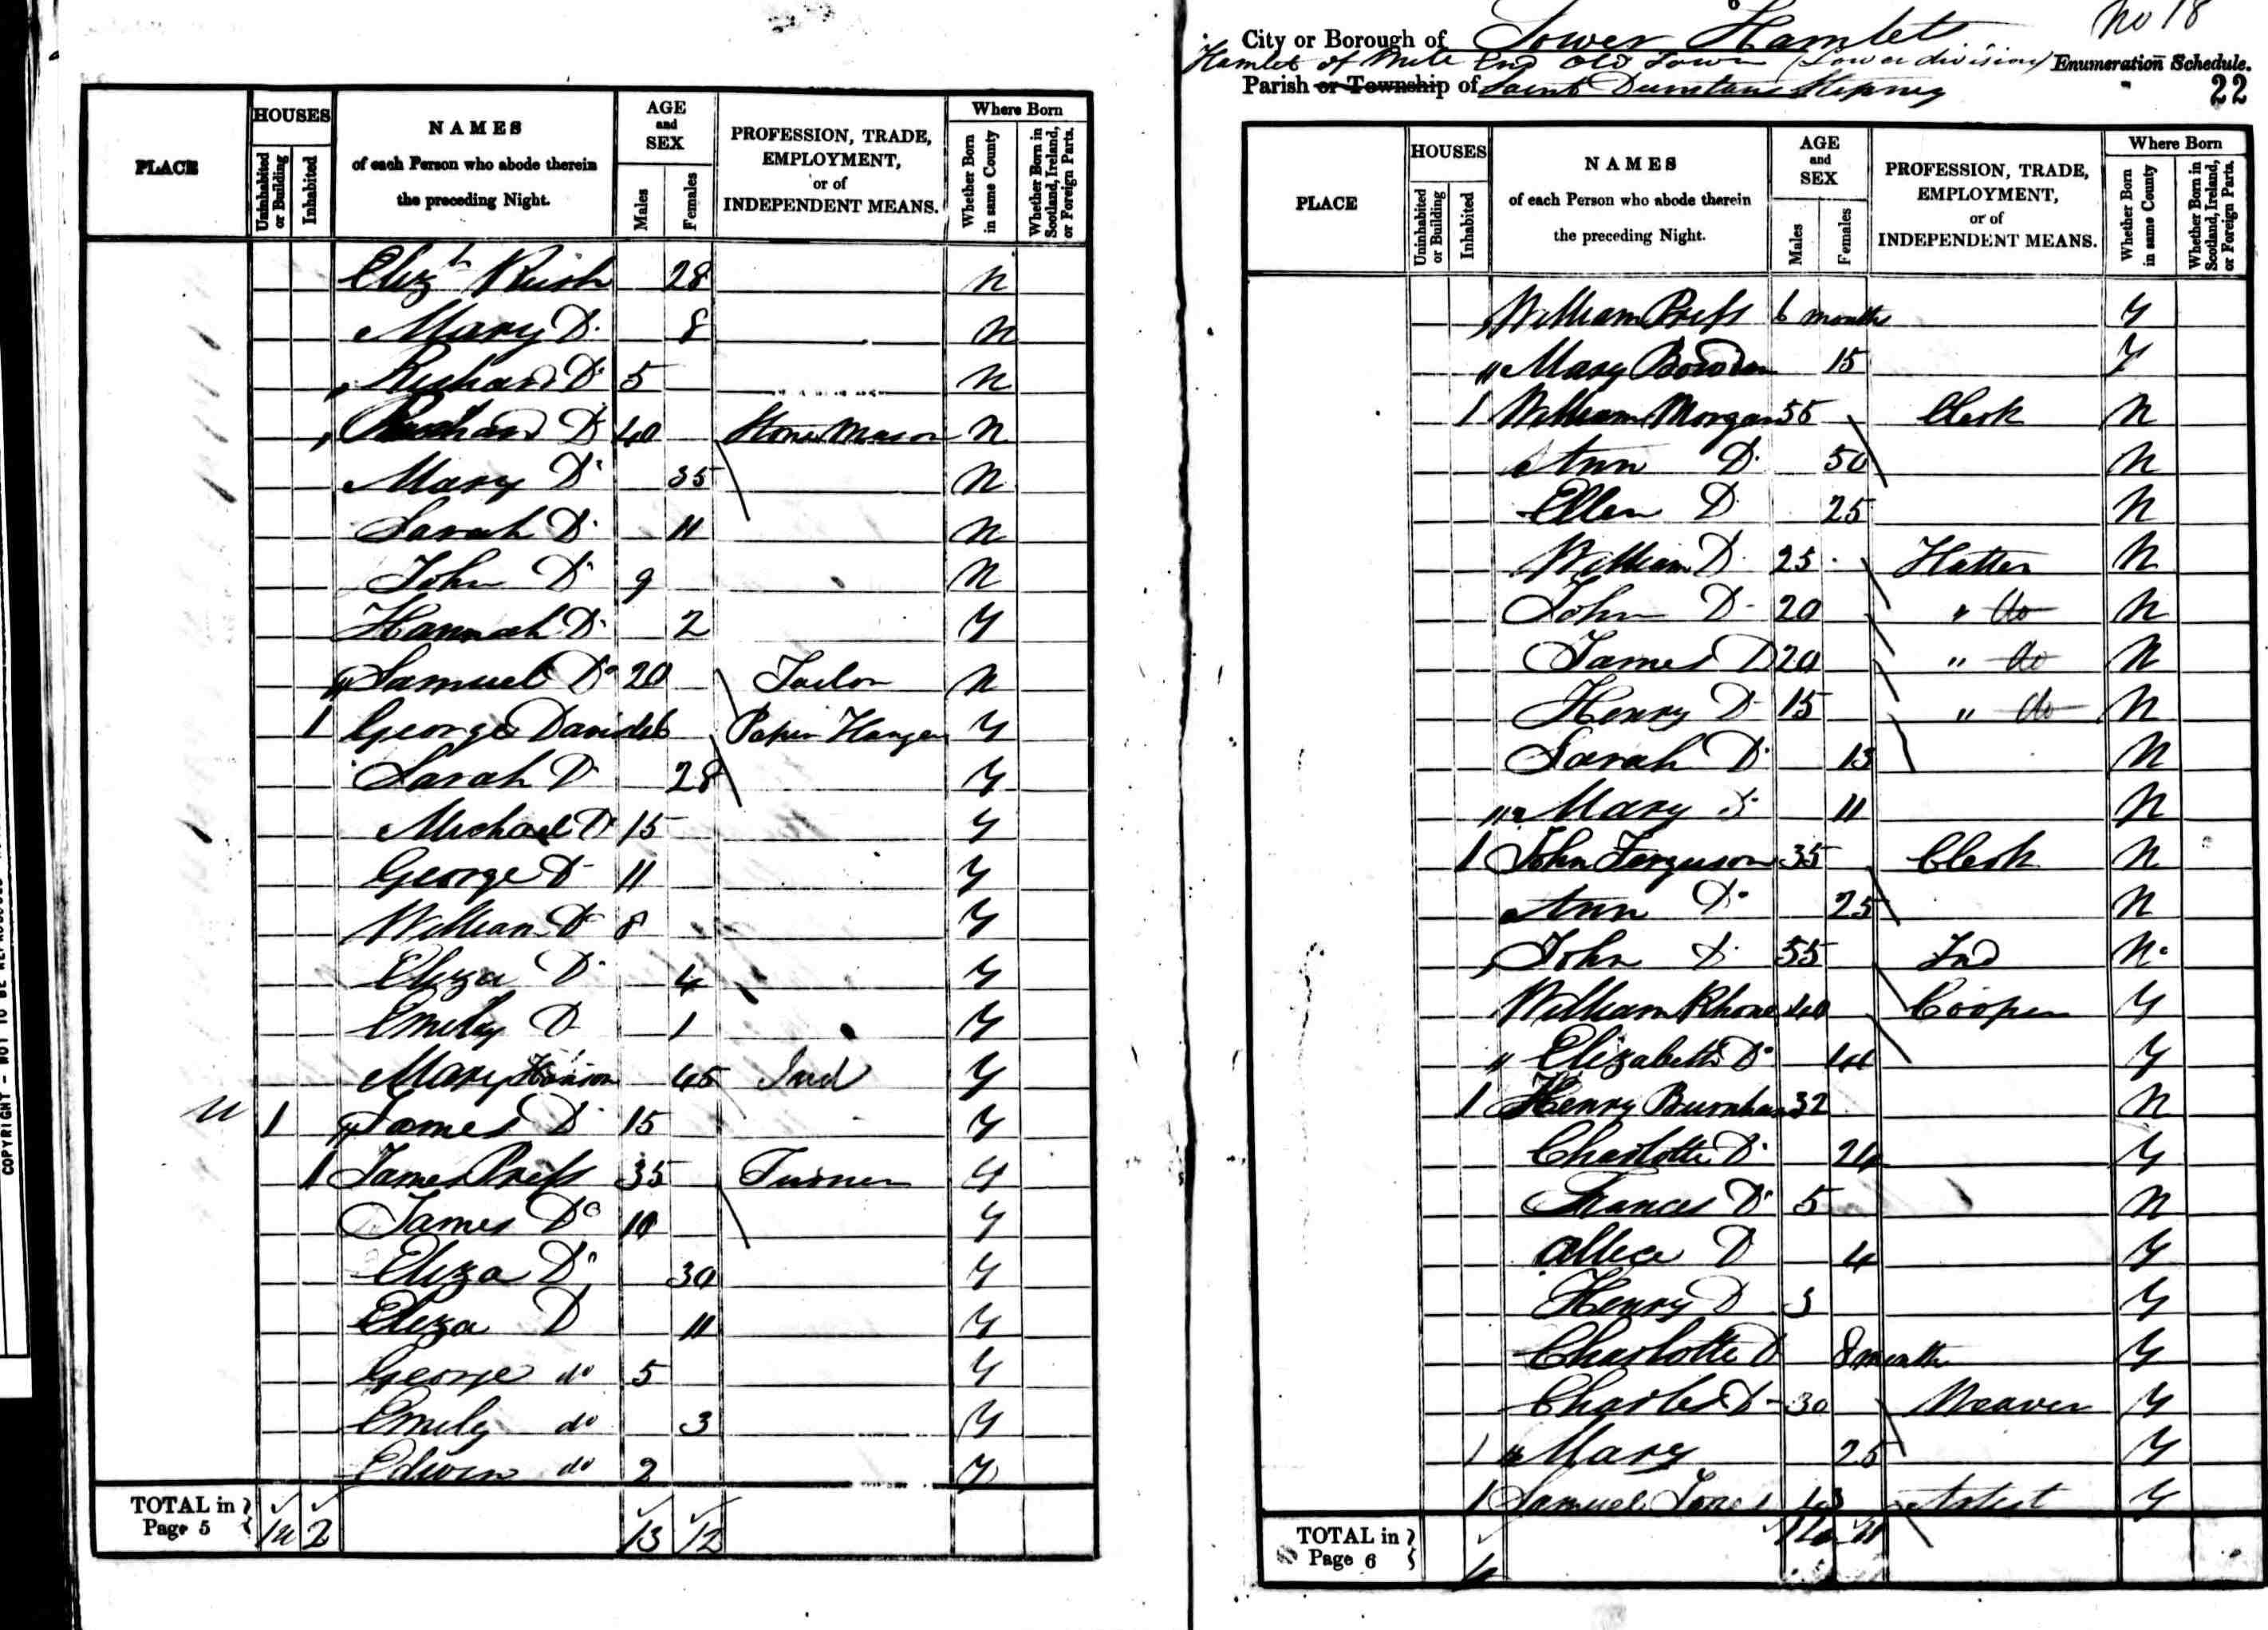 PLACE
HOUSES
Uninhabited or Building
Inhabited
NAMES
of each Person who abode therein
the preceding Night.
AGE
and
SEX
Males
Females
PROFESSION, TRADE,
EMPLOYMENT,
or of
INDEPENDENT MEANS.
Where Born
Whether Born in same County
Whether Born in Scotland, Ireland, or Foreign Parts.
Elizth Rush 28 N
Mary Do 8 N
Richard Do 5 N
Do 40 Stone Mason N
Mary Do 35 N
Sarah Do 11 N
John Do 9 N
Hannah Do 2 Y
Samuel Do 20 Tailor N
1 George Davids Paper Hanger Y
Sarah Do 28 Y
Michael Do 15 Y
George Do 11 Y
William Do 8 Y
Eliza Do 4 Y
Emily Do 1 Y
Mary 45 Ind Y
U 1 James Do 15 Y
1 James Press 35 Turner Y
James Do 10 Y
Eliza Do 30 Y
Eliza D 11 Y
George do 5 Y
Emily do 3 Y
Edwin do 2 Y
TOTAL in
Page 5
1u 2 13 12
COPYRIGHT - NOT TO BE
No 18
City or Borough of Tower Hamlets
Hamlet of Mile End Old Town (Lower division) Enumeration Schedule.
Parish or Township of Saint Dunstans Stepney
22
PLACE
HOUSES
Uninhabited or Building
Inhabited
NAMES
of each Person who abode therein
the preceding Night.
AGE
and
SEX
Males
Females
PROFESSION, TRADE,
EMPLOYMENT,
or of
INDEPENDENT MEANS.
Where Born
Whether Born in same County
Whether Born in Scotland, Ireland, or Foreign Parts.
William Press 6 months Y
Mary Bowden 15 Y
1 William Morgan 55 Clerk N
Ann D 50 N
Ellen D 25 N
William D 25 Hatter N
John D 20 " do N
James D 20 " do N
Henry D 15 " do N
Sarah Do 13 N
Mary Do 11 N
1 John Ferguson 35 Clerk N
Ann Do 25 N
John Do 55 Ind N
William Rhone 40 Cooper Y
Elizabeth Do Y
1 Henry Burnham 32 N
Charlotte Do 24 Y
Frances Do 5 N
Allice D 4 Y
Henry D 3 Y
Charlotte D 8 months Y
Charles D 30 Weaver Y
1 Mary 25 Y
1 Samuel Jones Artist Y
TOTAL in
Page 6